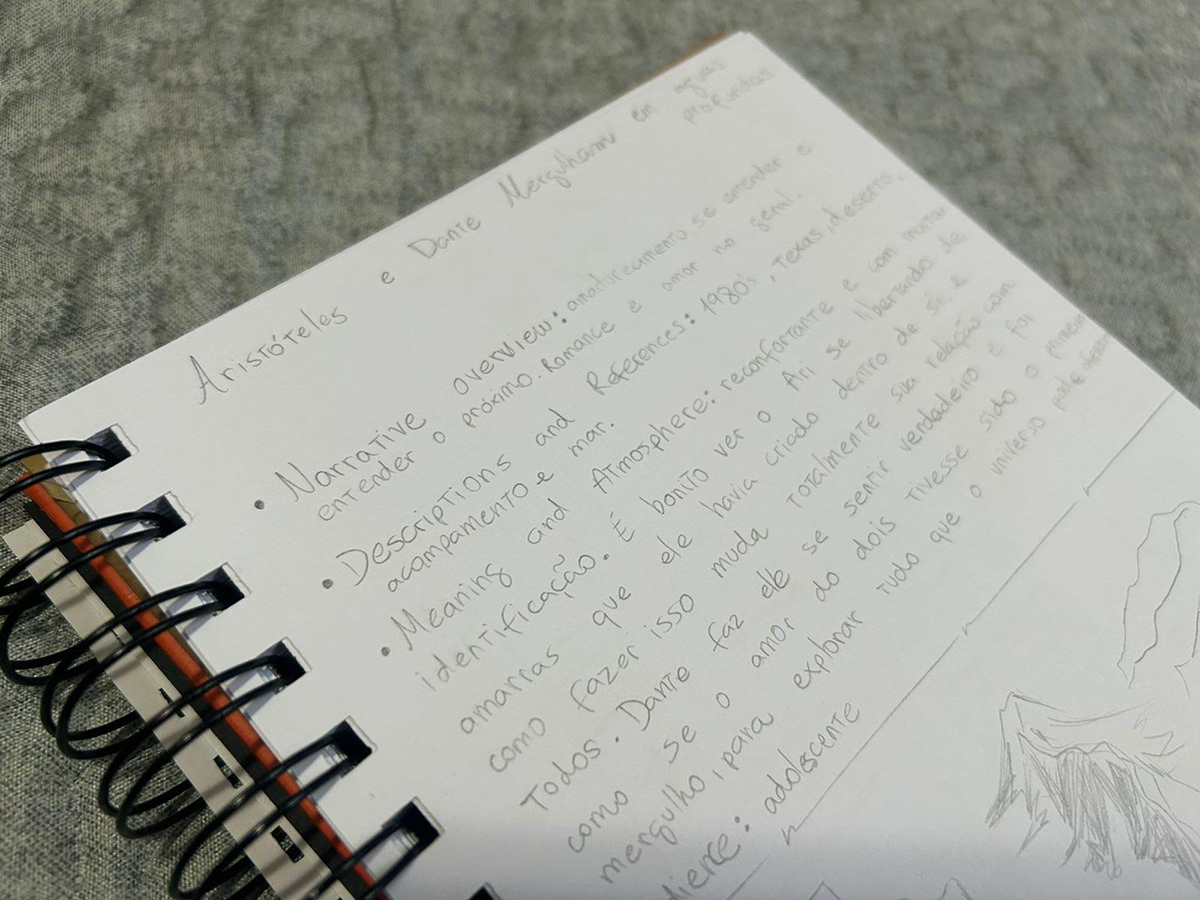 Aristóteles e Dante Mergulham em águas
profundas
• Narrative overview: amadurecimento, se entender e
entender o próximo. Romance e amor no geral.
• Descriptions and References: 1980's, Texas, deserto,
acampamento e mar.
• Meaning and Atmosphere: reconfortante e com muita
identificação. É bonito ver o Ari se libertando de
amarras que ele havia criado dentro de si, e
como fazer isso muda totalmente sua relação com
Todos. Dante faz ele se sentir verdadeiro e foi
como se o amor do dois tivesse sido o primeiro
mergulho, para explorar tudo que o universo pode
dience: adolescente